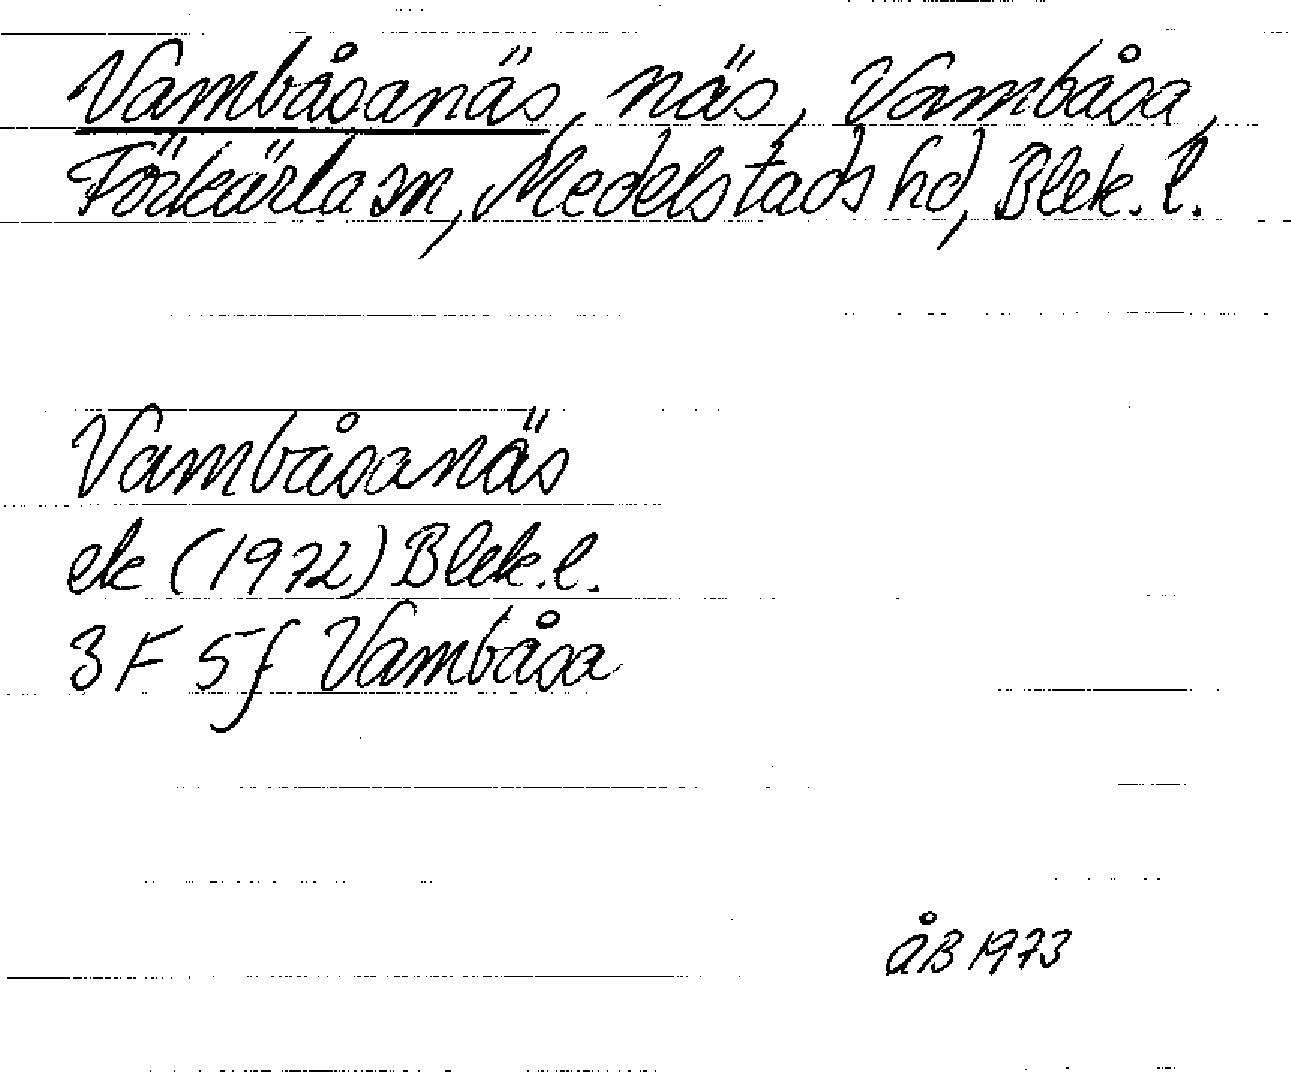 Vambåsanäs, näs, Vambåsa,
Förkärla sn, Medelstads hd, Blek. l.
Vambåsanäs
ek (1972) Blek. l.
3F 5f Vambåsa
ÅB 1973